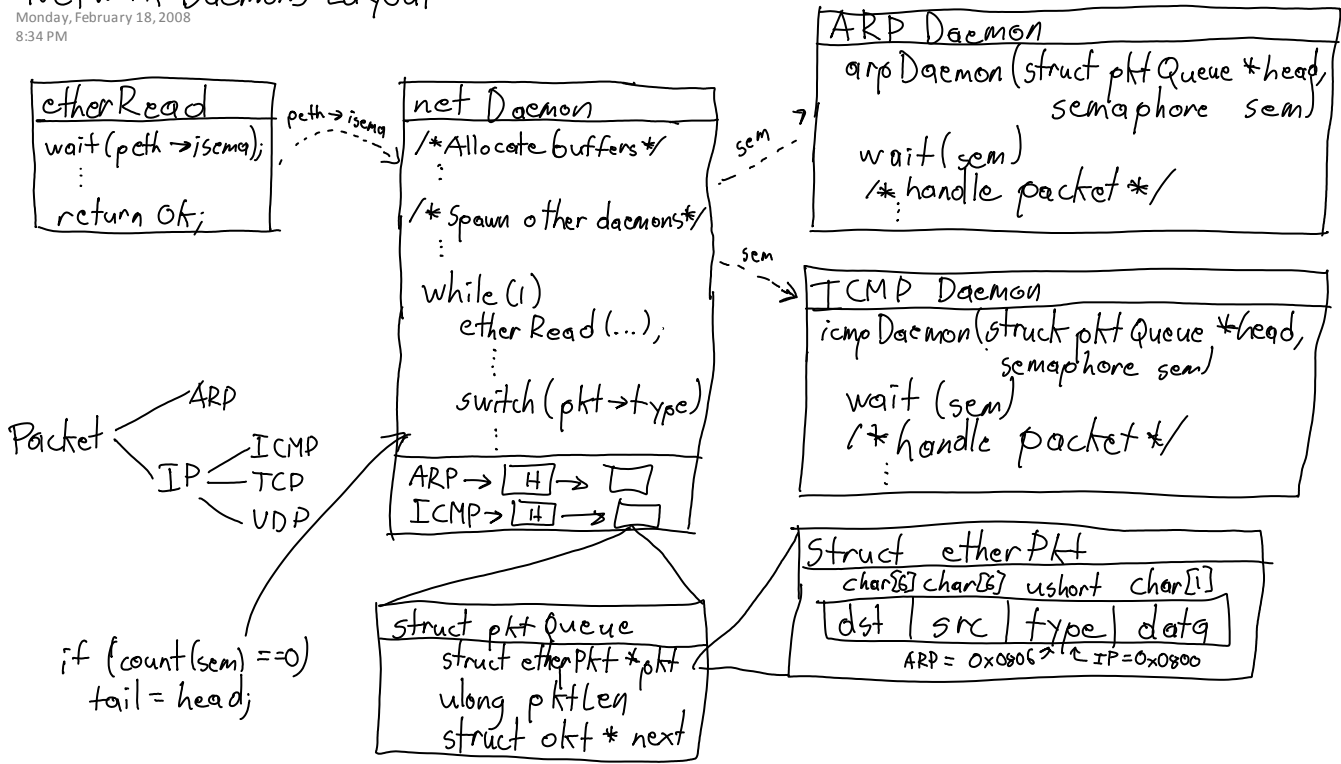 Network Daemons Layout
Monday, February 18, 2008
8:34 PM
etherRead
wait(peth→isema);
⋮
return OK;
peth→isema
net Daemon
/*Allocate buffers*/
⋮
/* Spawn other daemons*/
⋮
while (1)
etherRead(...);
⋮
switch (pkt→type)
⋮
ARP→ H →
ICMP→ H →
sem
sem
ARP Daemon
arpDaemon(struct pktQueue *head,
semaphore sem)
wait(sem)
/* handle packet */
⋮
ICMP Daemon
icmpDaemon(struct pktQueue *head,
semaphore sem)
wait (sem)
/* handle packet */
⋮
Packet
ARP
IP
ICMP
TCP
UDP
if (count(sem) ==0)
tail = head;
struct pktQueue
struct etherPkt *pkt
ulong pktLen
struct pkt * next
Struct etherPkt
char[6] char[6] ushort char[1]
dst src type data
ARP = 0x0806 IP=0x0800